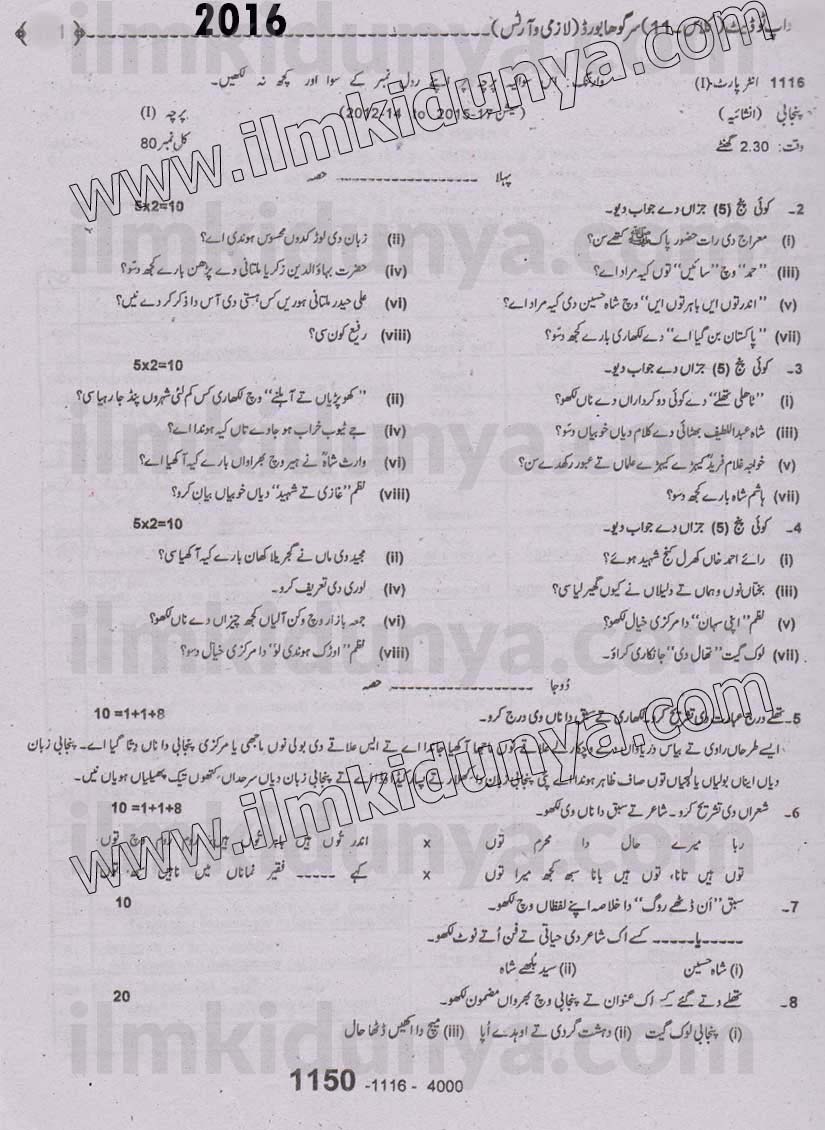 2016
(کلاس ۔ 11) سرگودھا بورڈ (لازمی و آرٹس)
1
1116 انٹر پارٹ۔(I) وارننگ: اس سوالیہ پرچہ پر اپنے رول نمبر کے سوا اور کچھ نہ لکھیں۔
پنجابی (انشائیہ) (سیشن 17-2015 to 2012-14) پرچہ (I)
وقت: 2.30 گھنٹے کل نمبر 80
پہلا ــــــــــــ حصہ
2۔ کوئی پنج (5) جزاں دے جواب دیو۔ 5x2=10
(i) معراج دی رات حضور پاک ﷺ کتھے سن؟ (ii) زبان دی لوڑ کدوں محسوس ہوندی اے؟
(iii) "حمد" وچ "سائیں" توں کیہ مراد اے؟ (iv) حضرت بہاؤالدین زکریا ملتانی دے پڑھن بارے کجھ دسّو؟
(v) "اندر توں ایں باہر توں ایں" وچ شاہ حسین دی کیہ مراد اے؟ (vi) علی حیدر ملتانی ہوریں کس ہستی دی آس دا ذکر کردے نیں؟
(vii) "پاکستان بن گیا اے" دے لکھاری بارے کجھ دسّو؟ (viii) رفیع کون سی؟
3۔ کوئی پنج (5) جزاں دے جواب دیو۔ 5x2=10
(i) "ٹاہلی تھلے" دے کوئی دو کرداراں دے ناں لکھو؟ (ii) "کھوپڑیاں تے آہلنے" وچ لکھاری کس کم لئی شہروں پنڈ جا رہیا سی؟
(iii) شاہ عبداللطیف بھٹائی دے کلام دیاں خوبیاں دسّو؟ (iv) جے ٹیوب خراب ہو جاوے تاں کیہ ہوندا اے؟
(v) خواجہ غلام فریدؒ کیہڑے کیہڑے علماں تے عبور رکھدے سن؟ (vi) وارث شاہؒ نے ہیر وچ بھراواں بارے کیہ آکھیا اے؟
(vii) ہاشم شاہ بارے کجھ دسو؟ (viii) نظم "غازی تے شہید" دیاں خوبیاں بیان کرو؟
4۔ کوئی پنج (5) جزاں دے جواب دیو۔ 5x2=10
(i) رائے احمد خاں کھرل کنج شہید ہوئے؟ (ii) مجید دی ماں نے گجریلا کھان بارے کیہ آکھیا سی؟
(iii) بختاں نوں وہماں تے دلیلاں نے کیوں گھیر لیا سی؟ (iv) لوری دی تعریف کرو۔
(v) نظم "اپنی سہان" دا مرکزی خیال لکھو؟ (vi) جمعہ بازار وچ وکن آلیاں کجھ چیزاں دے ناں لکھو؟
(vii) لوک گیت "تھال دی" جانکاری کراؤ۔ (viii) نظم "اوڑک ہوندی لو" دا مرکزی خیال دسو؟
دُوجا ــــــــــــ حصہ
5۔ تھلے درج عبارت دی تشریح کرو۔ لکھاری تے سبق دا ناں وی درج کرو۔ 10 =1+1+8
ایسے طرحاں راوی تے بیاس دریاواں دے وچکارلے علاقے نوں ماجھا آکھیا جاندا اے تے ایس علاقے دی بولی نوں ماجھی یا مرکزی پنجابی دا ناں دتا گیا اے۔ پنجابی زبان
دیاں ایناں بولیاں یا لہجیاں توں صاف ظاہر ہوندا اے پئی پنجابی زبان دا کھلار تے اے تے پنجابی زبان دیاں سرحداں کتھوں تیک پھیلیاں ہویاں نیں۔
6۔ شعراں دی تشریح کرو۔ شاعر تے سبق دا ناں وی لکھو۔ 10 =1+1+8
ربا میرے حال دا محرم توں x اندر توں ہیں باہر توں ہیں روم روم وچ توں
توں ہیں تانا، توں ہیں بانا سبھ کجھ میرا توں x کہے ــــــ فقیر نماناں میں ناہیں سبھ توں
7۔ سبق "اَن ڈٹھے روگ" دا خلاصہ اپنے لفظاں وچ لکھو۔ 10
ــــــ یا ــــــ کسے اک شاعر دی حیاتی تے فن اُتے نوٹ لکھو۔
(i) شاہ حسین (ii) سید بلھے شاہ
8۔ تھلے دتے گئے کسے اک عنوان تے پنجابی وچ بھرواں مضمون لکھو۔ 20
(i) پنجابی لوک گیت (ii) دہشت گردی تے اوہدے اُپا (iii) میچ دا اکھیں ڈٹھا حال
1150 -1116 - 4000
www.ilmkidunya.com
www.ilmkidunya.com
ilmkidunya.com
ilmkidunya.com
ilmkidunya.com
ilmkidunya.com
ilmkidunya.com
ilmkidunya.com